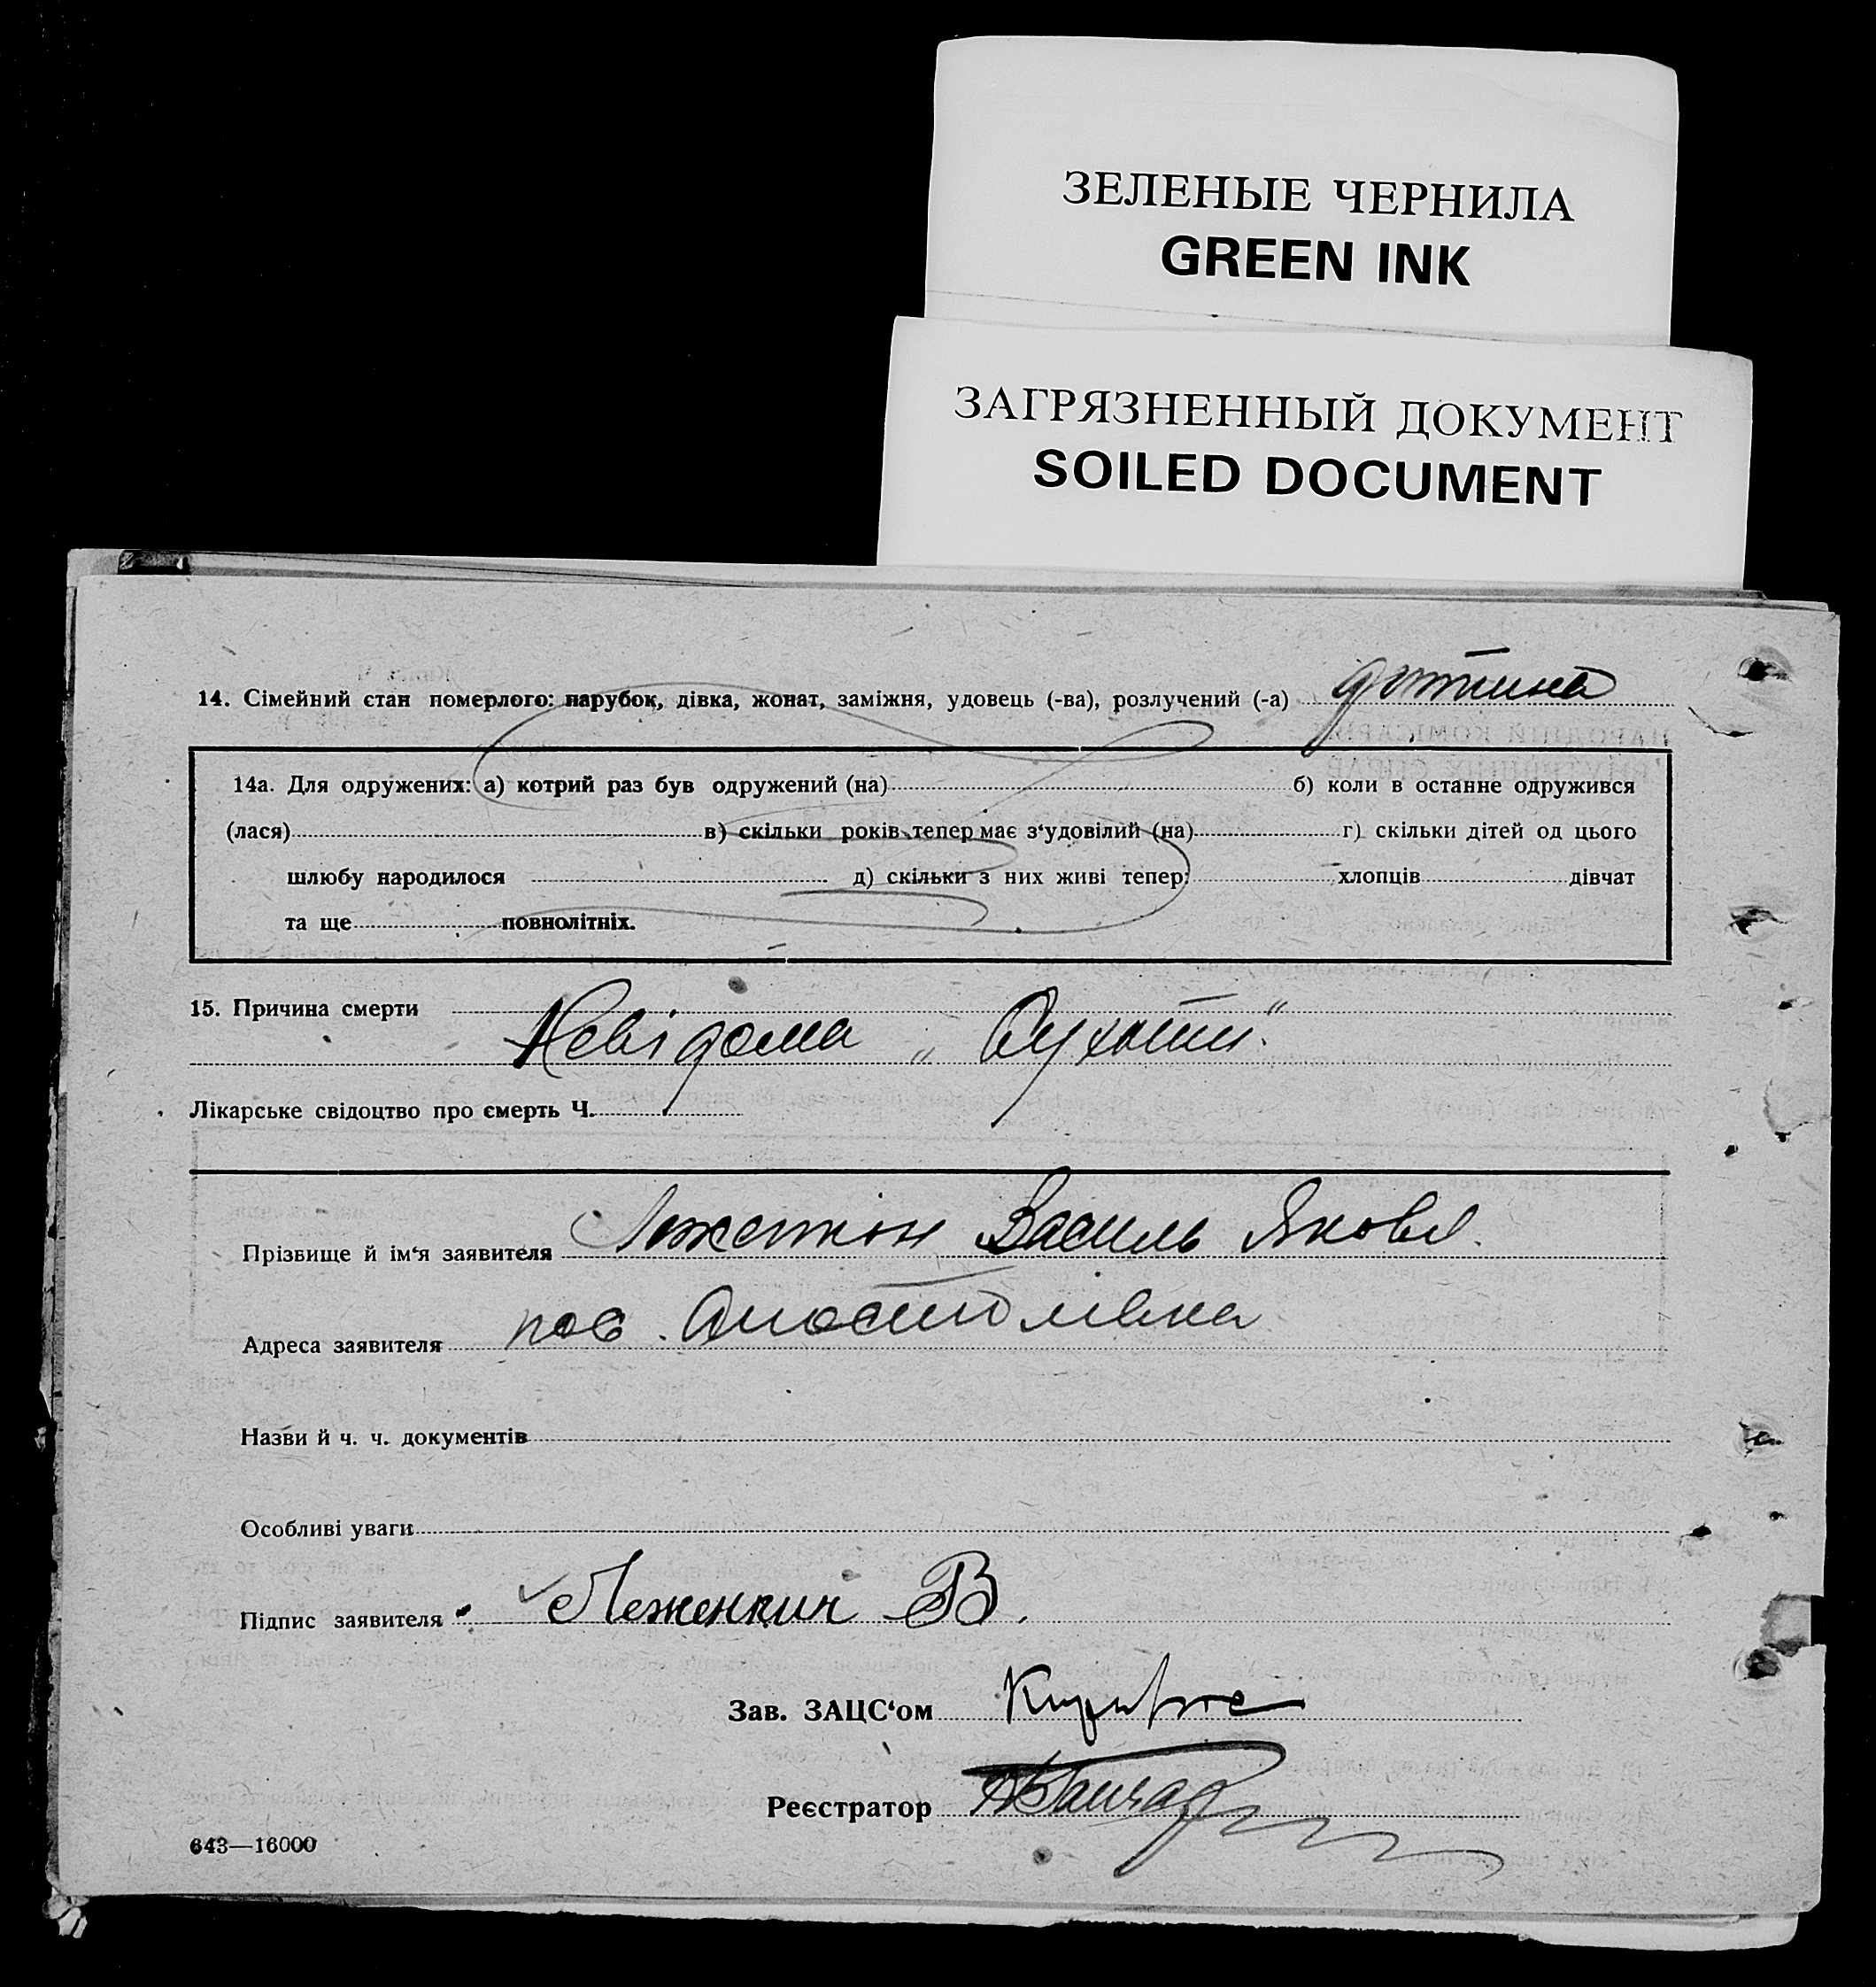 ЗЕЛЕНЫЕ ЧЕРНИЛА
GREEN INK
ЗАГРЯЗНЕННЫЙ ДОКУМЕНТ
SOILED DOCUMENT
14. Сімейний стан померлого: парубок, дівка, жонат, заміжня, удовець (-ва), розлучений (-а) дитина
14а. Для одружених: а) котрий раз був одружений (на) б) коли в останнє одружився
(лася) в) скільки років тепер має з‘удовілий (на) г) скільки дітей од цього
шлюбу народилося д) скільки з них живі тепер: хлопців дівчат
та ще повнолітніх.
15. Причина смерти
Невідома „Сухоти“
Лікарське свідоцтво про смерть Ч.
Прізвище й ім‘я заявителя Василь Яковл.
Адреса заявителя пос. Апостолівка
Назви й ч. ч. документів
Особливі уваги
Підпис заявителя Леженкин В.
Зав. ЗАЦС‘ом
Реєстратор
643—16000